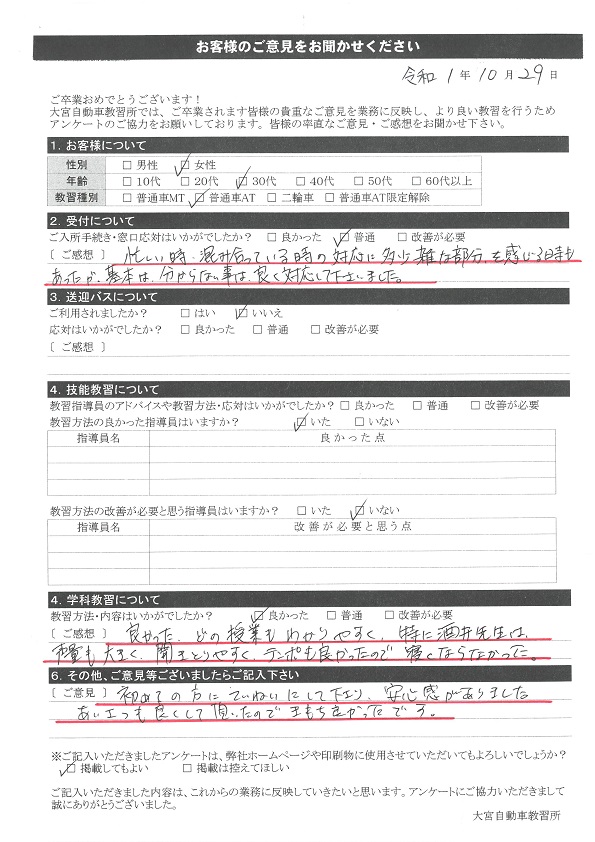 お客様のご意見をお聞かせください
令和 1 年 10 月 29 日
ご卒業おめでとうございます！
大宮自動車教習所では、ご卒業されます皆様の貴重なご意見を業務に反映し、より良い教習を行うため
アンケートのご協力をお願いしております。皆様の率直なご意見・ご感想をお聞かせ下さい。
1. お客様について
性別 □ 男性 ☑ 女性
年齢 □ 10代 □ 20代 ☑ 30代 □ 40代 □ 50代 □ 60代以上
教習種別 □ 普通車MT ☑ 普通車AT □ 二輪車 □ 普通車AT限定解除
2. 受付について
ご入所手続き・窓口応対はいかがでしたか？ □ 良かった ☑ 普通 □ 改善が必要
〔 ご感想 〕 忙しい時、混み合っている時の対応に多少雑な部分を感じる時も
あったが、基本は、分からない事は、良く対応して下さいました。
3. 送迎バスについて
ご利用されましたか？ □ はい ☑ いいえ
応対はいかがでしたか？ □ 良かった □ 普通 □ 改善が必要
〔 ご感想 〕
4. 技能教習について
教習指導員のアドバイスや教習方法・応対はいかがでしたか？ □ 良かった □ 普通 □ 改善が必要
教習方法の良かった指導員はいますか？ ☑ いた □ いない
指導員名 良かった点
教習方法の改善が必要と思う指導員はいますか？ □ いた ☑ いない
指導員名 改善が必要と思う点
4. 学科教習について
教習方法・内容はいかがでしたか？ ☑ 良かった □ 普通 □ 改善が必要
〔 ご感想 〕 良かった。どの授業もわかりやすく、特に酒井先生は、
声量も大きく、聞きとりやすく、テンポも良かったので寝くならなかった。
6. その他、ご意見等ございましたらご記入下さい
〔 ご意見 〕 初めての方にていねいにして下さり、安心感がありました
あいさつも良くして頂いたので きもち良かったです。
※ご記入いただきましたアンケートは、弊社ホームページや印刷物に使用させていただいてもよろしいでしょうか？
☑ 掲載してもよい □ 掲載は控えてほしい
ご記入いただきました内容は、これからの業務に反映していきたいと思います。アンケートにご協力いただきまして
誠にありがとうございました。
大宮自動車教習所